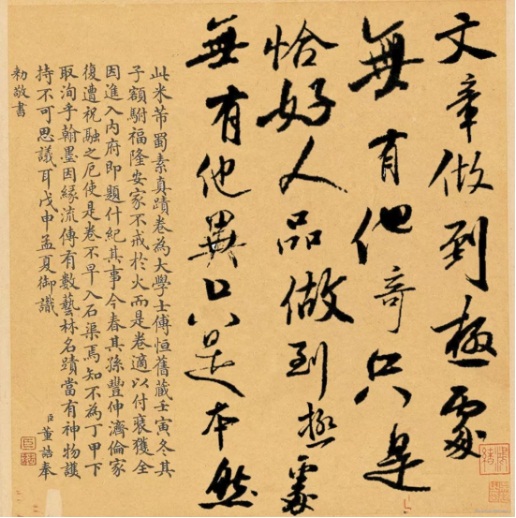 文章做到極處
無有他奇只是
恰好人品做到極處
無有他異只是本然
此米芾蜀素真蹟卷為大學士傅恒舊藏壬寅冬其
子額駙福隆安家不戒於火而是卷適以付裝獲全
因進入內府即題什紀其事今春其孫豐伸濟倫家
復遭祝融之厄使是卷不早入石渠焉知不為丁甲下
取洵乎翰墨因緣流傳有數藝林名蹟當有神物護
持不可思議耳戊申孟夏御識
臣董誥奉
勅敬書